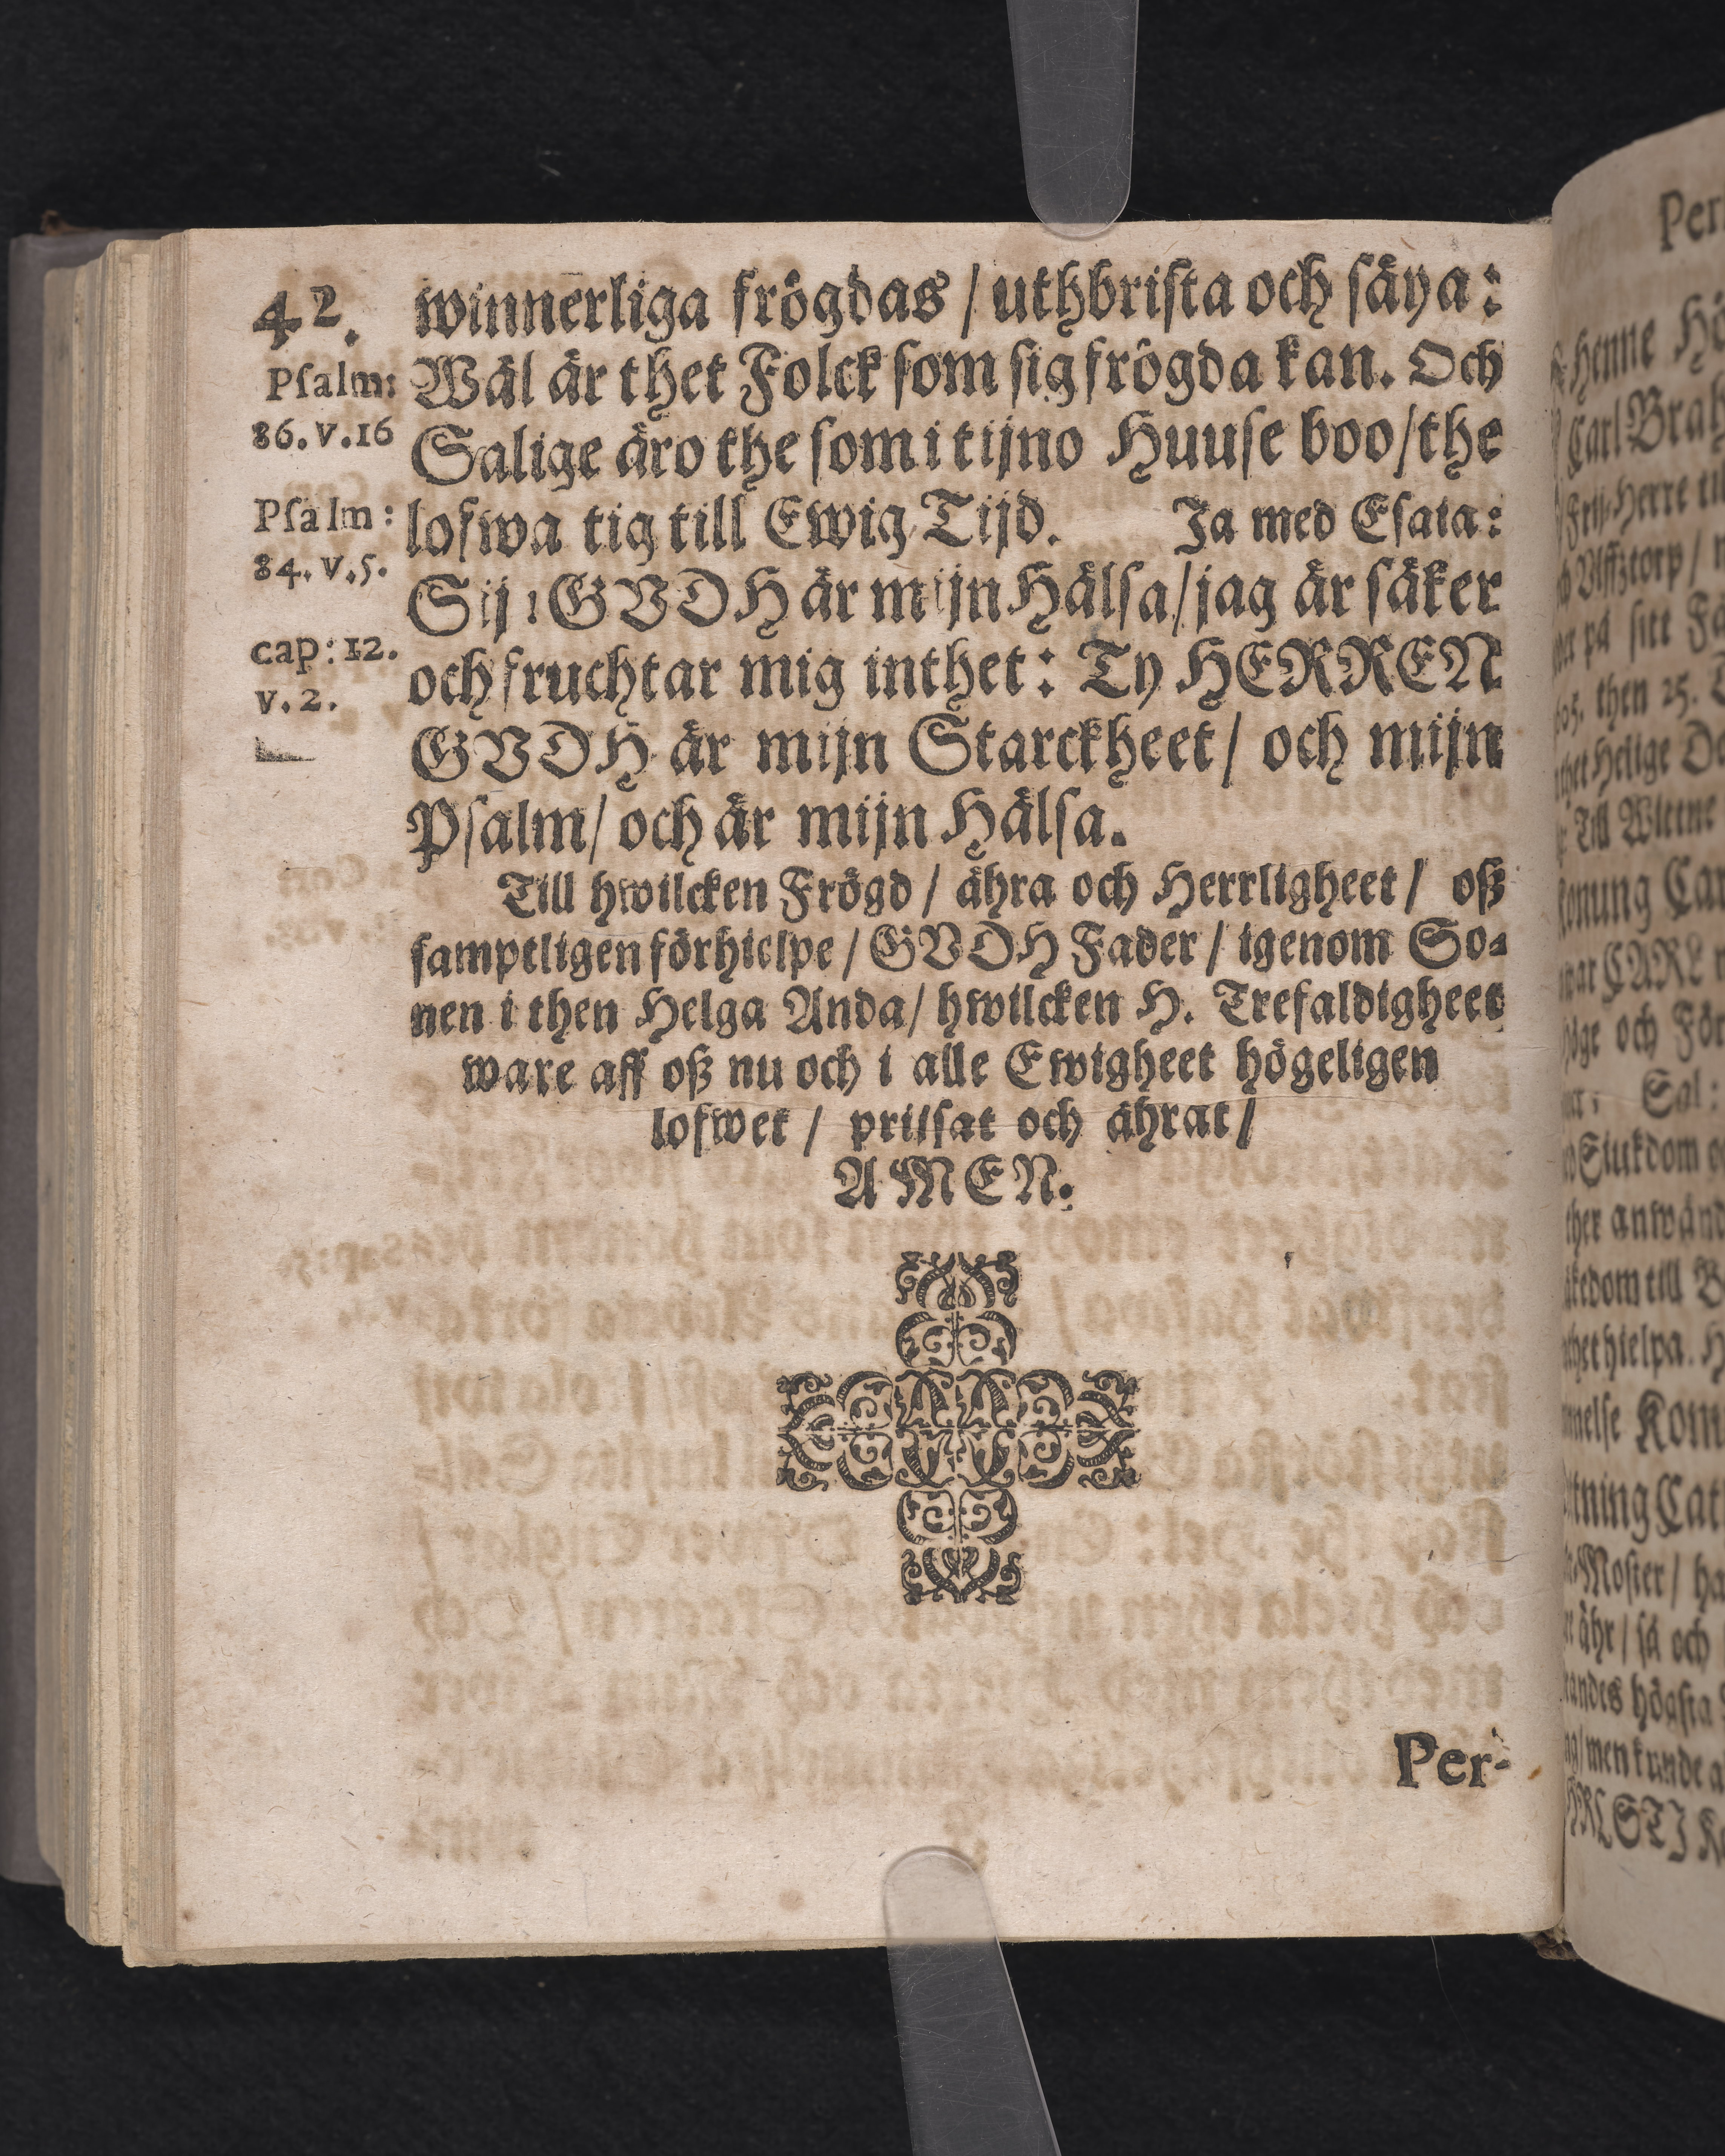 42.
winnerliga frögdas / uthbrista och säya:
Psalm:
86. v. 16
Wäl är thet Folck som sig frögda kan. Och
Salige äro the som i tijno Huuse boo / the
Psalm:
84. v. 5.
lofwa tig till Ewig Tijd. Ja med Esaia:
Sij: GVDH är mijn Hälsa / jag är säker
cap: 12.
v. 2.
och fruchtar mig inthet: Ty HERREN
GVDH är mijn Starckheet / och mijn
Psalm / och är mijn Hälsa.
Till hwilcken Frögd / ähra och Herrligheet / oß
samptligen förhielpe / GVDH Fader / igenom So-
nen i then Helga Anda / hwilcken H. Trefaldigheet
ware aff oß nu och i alle Ewigheet högeligen
lofwet / prijsat och ährat /
AMEN.
Per-
Per
henne
Carl
Herre
torp /
på sitt
then 25.
Helige
Till
CARL
och För
Sal:
Siukdom
anwänd
till
hielpa.
Kom
Moster /
ähr / så och
högsta
men kunde